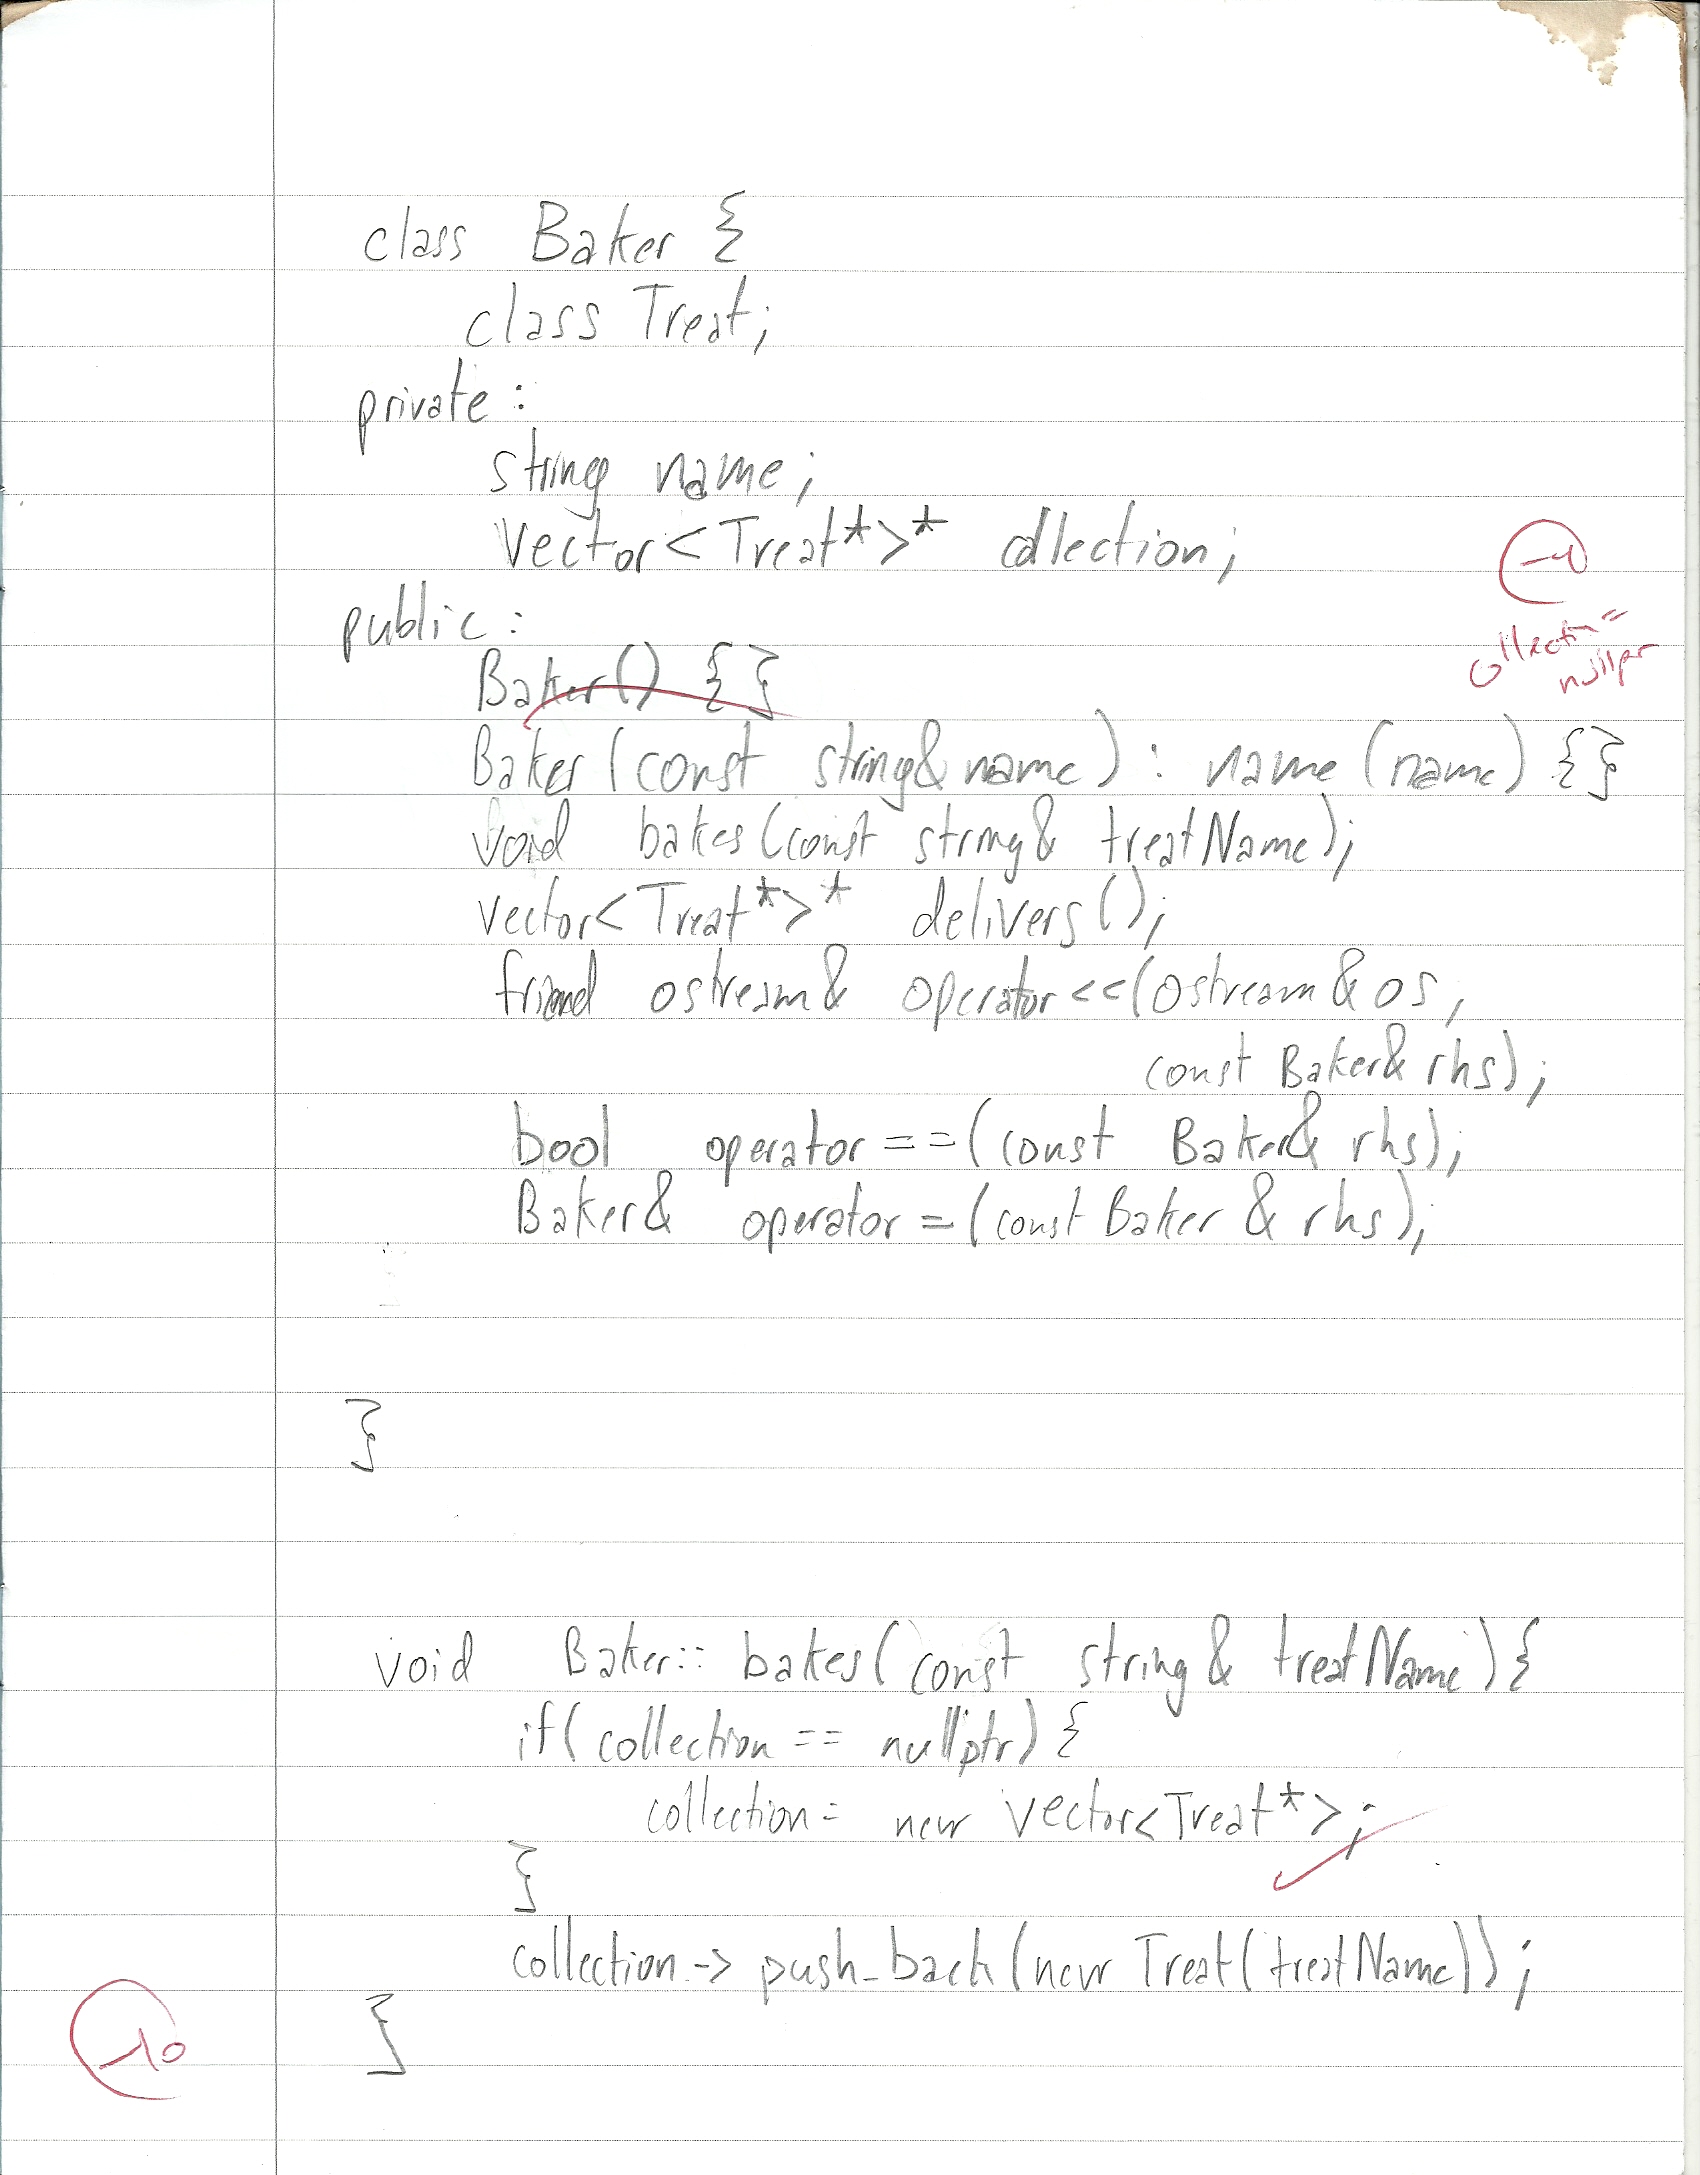 class Baker {
class Treat;
private:
string name;
vector<Treat*>* collection;
-1
collectin =
nullptr
public:
Baker() {}
Baker(const string& name) : name(name) {}
void bakes(const string& treatName);
vector<Treat*>* delivers();
friend ostream& operator<<(ostream& os,
const Baker& rhs);
bool operator==(const Baker& rhs);
Baker& operator=(const Baker & rhs);
}
void Baker::bakes(const string& treatName){
if(collection == nullptr){
collection = new vector<Treat*>;
}
collection->push_back(new Treat(treatName));
}
-10